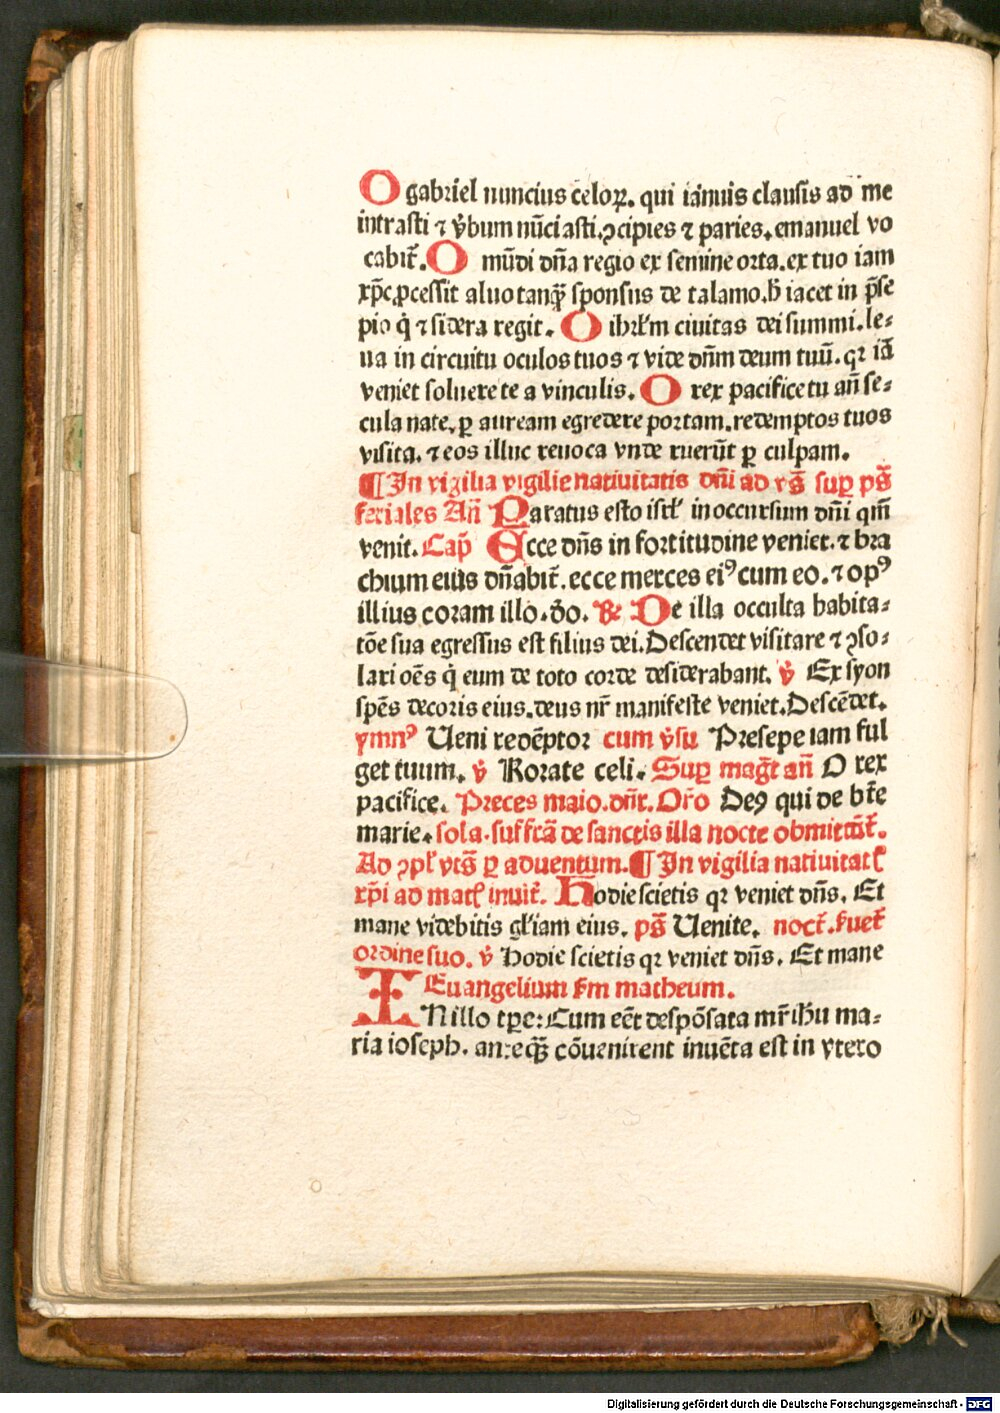 O gabriel nuncius celoꝝ. qui ianuis clausis ad me
intrasti ⁊ v̾bum nūciasti.ꝯcipies ⁊ paries.emanuel vo
cabit᷑. O mūdi dn̄a regio ex semine orta.ex tuo iam
xp̄c ꝓcessit aluo tanqꝫ̄ sponsus de talamo.h̄ iacet in p̄se
pio q̇ ⁊ sidera regit. O ihrl̄m ciuitas dei summi.le⸗
ua in circuitu oculos tuos ⁊ vide dn̄m deum tuū.qꝛ iā
veniet soluere te a vinculis. O rex pacifice tu an̄ se⸗
cula nate.ꝑ auream egredere portam.redemptos tuos
visita.⁊ eos illuc reuoca vnde ruerūt ꝑ culpam.
¶ In vigilia vigilie natiuitatis dn̄i ad vs̄ suꝑ ps̄
feriales An̄ Paratus esto isrl̄ in occursum dn̄i qm̄
venit. Cap̄ Ecce dn̄s in fortitudine veniet.⁊ bra
chium eius dn̄abit᷑.ecce merces eiꝰ cum eo.⁊ opꝰ
illius coram illo.d̄o. ℞ De illa occulta habita⸗
tōe sua egressus est filius dei.Descendet visitare ⁊ ꝯso⸗
lari oēs q̇ eum de toto corde desiderabant. v̾ Ex syon
spēs decoris eius.deus nr̄ manifeste veniet.Descēdet.
ymnꝰ Ueni redēptor cum v̾su Presepe iam ful
get tuum. v̾ Rorate celi. Suꝑ magt̄ an̄ O rex
pacifice. Preces maio.dn̄r.Or̄o Deꝰ qui de bt̄e
marie. sola.suffrā de sanctis illa nocte obmittūt᷑.
Ad ꝯpl̄ vts̄ ꝑ aduentum.¶ In vigilia natiuitatꝭ
xp̄i ad matꝭ inuit᷑. Hodie scietis qꝛ veniet dn̄s. Et
mane videbitis gl̄iam eius. ps̄ Uenite. noct᷑.ẜuet᷑
ordine suo. v̾ Hodie scietis qꝛ veniet dn̄s. Et mane
Euangelium ẜm matheum.
INillo tꝑe: Cum eēt despōsata mr̄ ihū ma⸗
ria ioseph. anteqꝫ̄ cōuenirent inuēta est in vtero
Digitalisierung gefördert durch die Deutsche Forschungsgemeinschaft - DFG